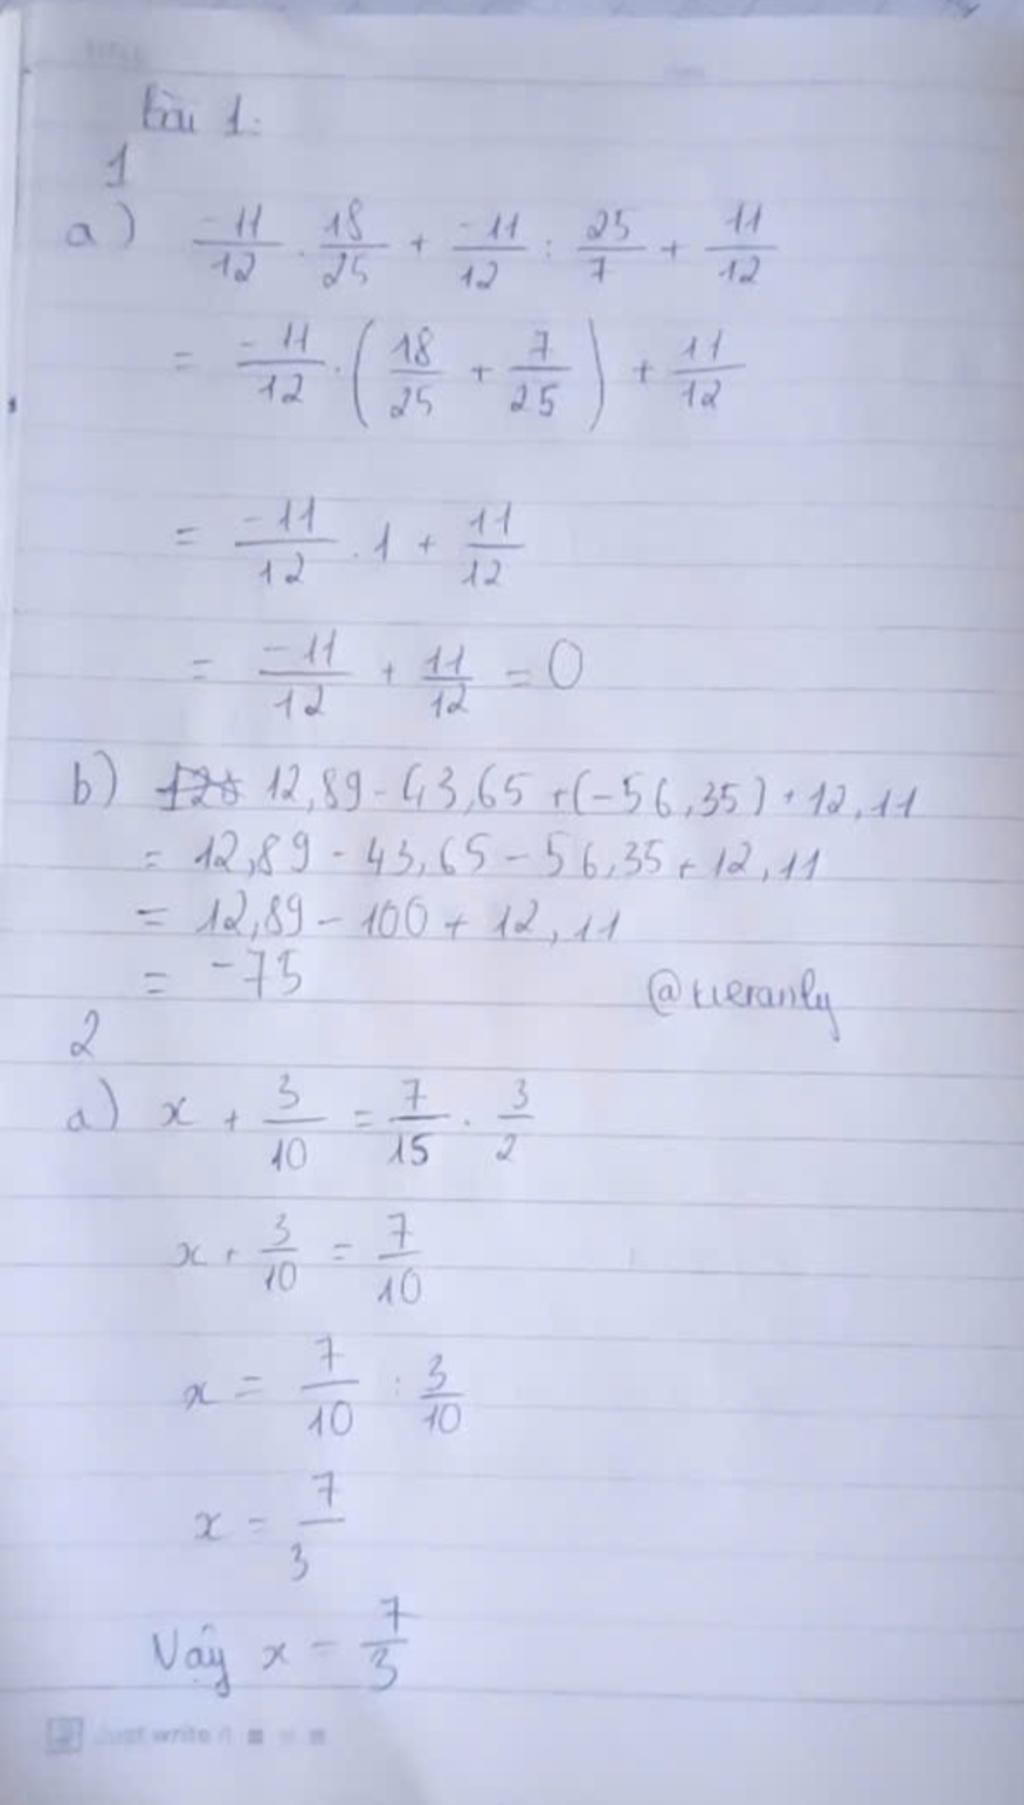 bài 1:
1
a) -11/12 . 18/25 + -11/12 : 25/7 + 11/12
= -11/12 . (18/25 + 7/25) + 11/12
= -11/12 . 1 + 11/12
= -11/12 + 11/12 = 0
b) 12,89 - 43,65 + (-56,35) + 12,11
= 12,89 - 43,65 - 56,35 + 12,11
= 12,89 - 100 + 12,11
= -75
2
a) x + 3/10 = 7/15 . 3/2
x + 3/10 = 7/10
x = 7/10 : 3/10
x = 7/3
Vậy x = 7/3
Just write it